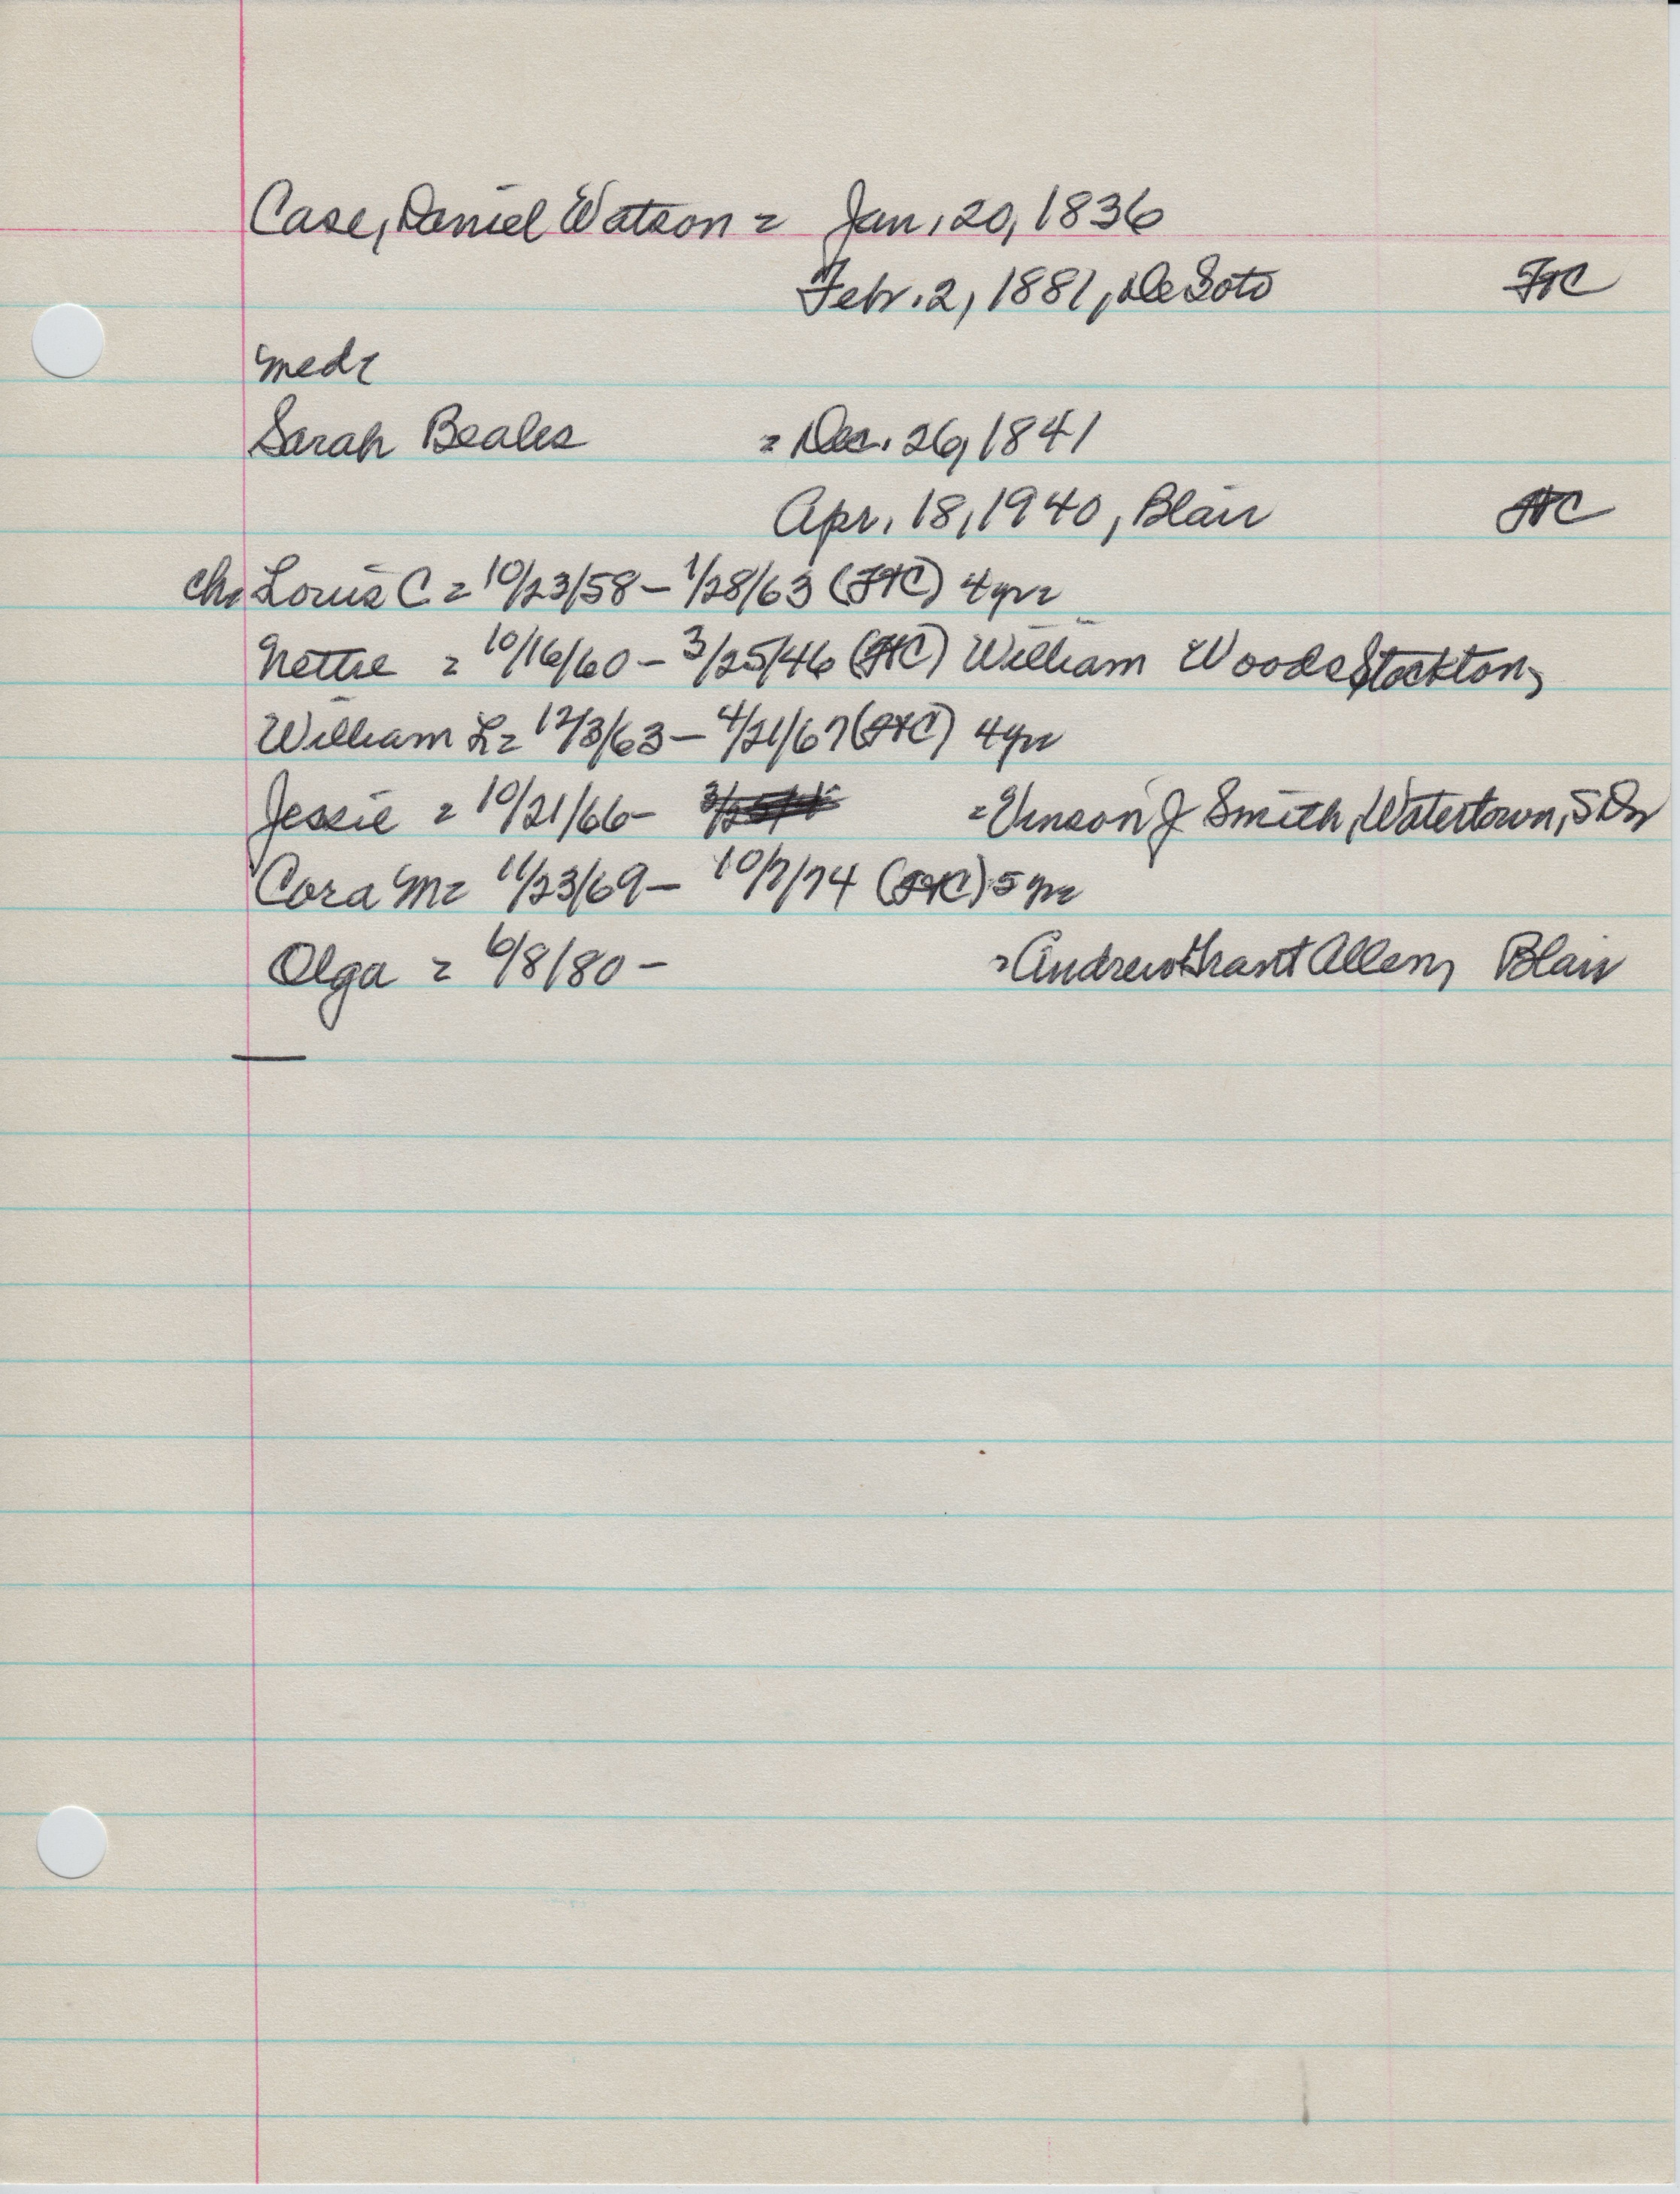 Case, Daniel Watson = Jan. 20, 1836
Febr. 2, 1881, De Soto FtC
med=
Sarah Beales = Dec. 26, 1841
Apr. 18, 1940, Blair FtC
ch. Louis C = 10/23/58 – 1/28/63 (FtC) 4yr=
Nettie = 10/16/60 – 3/25/46 (FtC) William Woods Stockton,
William L= 12/3/63 – 4/21/67 (FtC) 4yr
Jessie = 10/21/66 – =Vinson J Smith, Watertown, S D,
Cora M= 11/23/69 – 10/7/74 (FtC) 5 yr
Olga = 6/8/80 – =Andrew Grant Allen, Blair